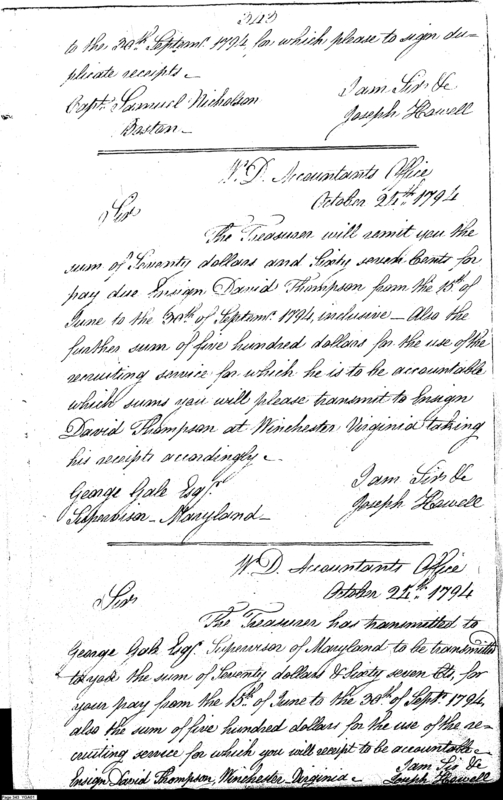 343
to the 30th Septemr. 1794, for which please to sign du=
plicate receipts.
I am Sir &c
Capt. Samuel Nicholson
Joseph Howell
Boston
W. D. Accountants Office
October 24th. 1794
Sir
The Treasurer will remit you the
sum of Seventy dollars and Sixty seven Cents for
pay due Ensign David Thompson from the 15th of
June to the 30th of Septemr. 1794, inclusive – Also the
further sum of five hundred dollars for the use of the
recruiting service for which he is to be accountable
which sums you will please transmit to Ensign
David Thompson at Winchester Virginia taking
his receipts accordingly –
I am Sir &c
George Gale Esqr.
Joseph Howell
Supervisor – Maryland –
W. D. Accountants Office
October 24th. 1794
Sir
The Treasurer has transmitted to
George Gale Esqr. Supervisor of Maryland to be transmitted
to you the sum of Seventy dollars & Sixty seven Cts, for
your pay from the 15th. of June to the 30th of Septr. 1794,
also the sum of five hundred dollars for the use of the re=
cruiting service for which you will receipt to be accountable
I am Sir &c
Ensign David Thompson, Winchester Virginia
Joseph Howell